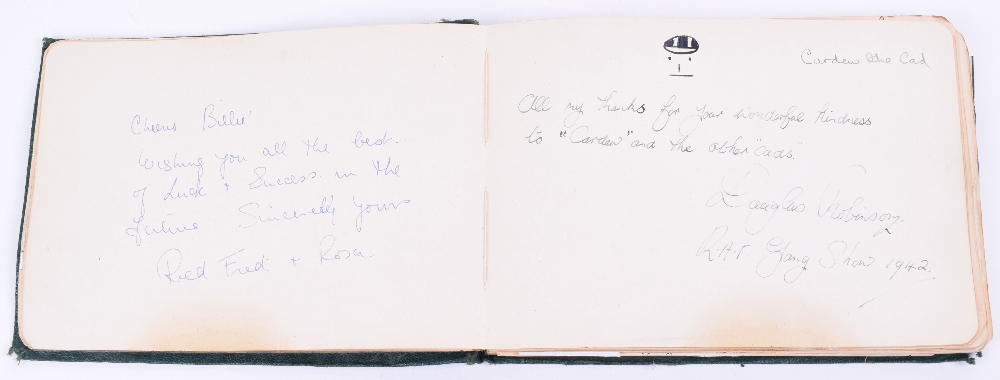 Cheerio Billie'
Wishing you all the best.
of Luck + Success in the
future Sincerely Yours
Fred + Rosa
Cardew the Cad
All my thanks for your wonderful kindness
to "Cardew" and the other "cads".
Douglas Robinson.
Gang Show 1942.